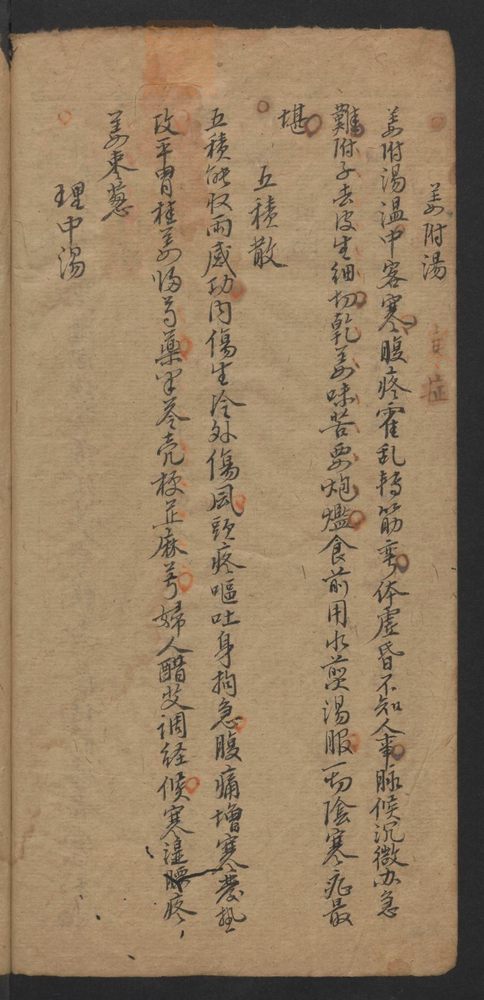 姜附湯
姜附湯温中客寒腹疼霍乱轉筋
体虚昏不知人事脉候沉微力急
難附子去皮生細切乾姜味苦要炮
食前用水煎湯服一切陰寒疟最
堪
五積散
五積能收兩感功内傷生冷外傷風頭疼嘔吐身拘急腹痛增寒發熱
攻平胃桂姜归芎藥半苓壳梗芷麻芎婦人醋艾調経候寒湿腰疼
姜枣葱
理中湯